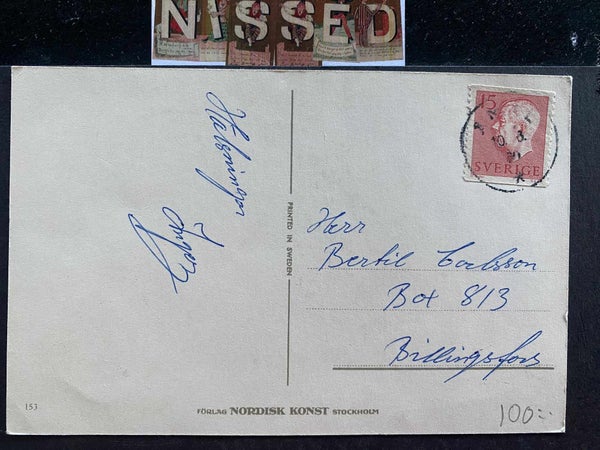 NISSED
Hälsningar
Inger
PRINTED IN SWEDEN
15
SVERIGE
Herr
Bertil Carlsson
Box 813
Billingsfors
153
FÖRLAG NORDISK KONST STOCKHOLM
100:-